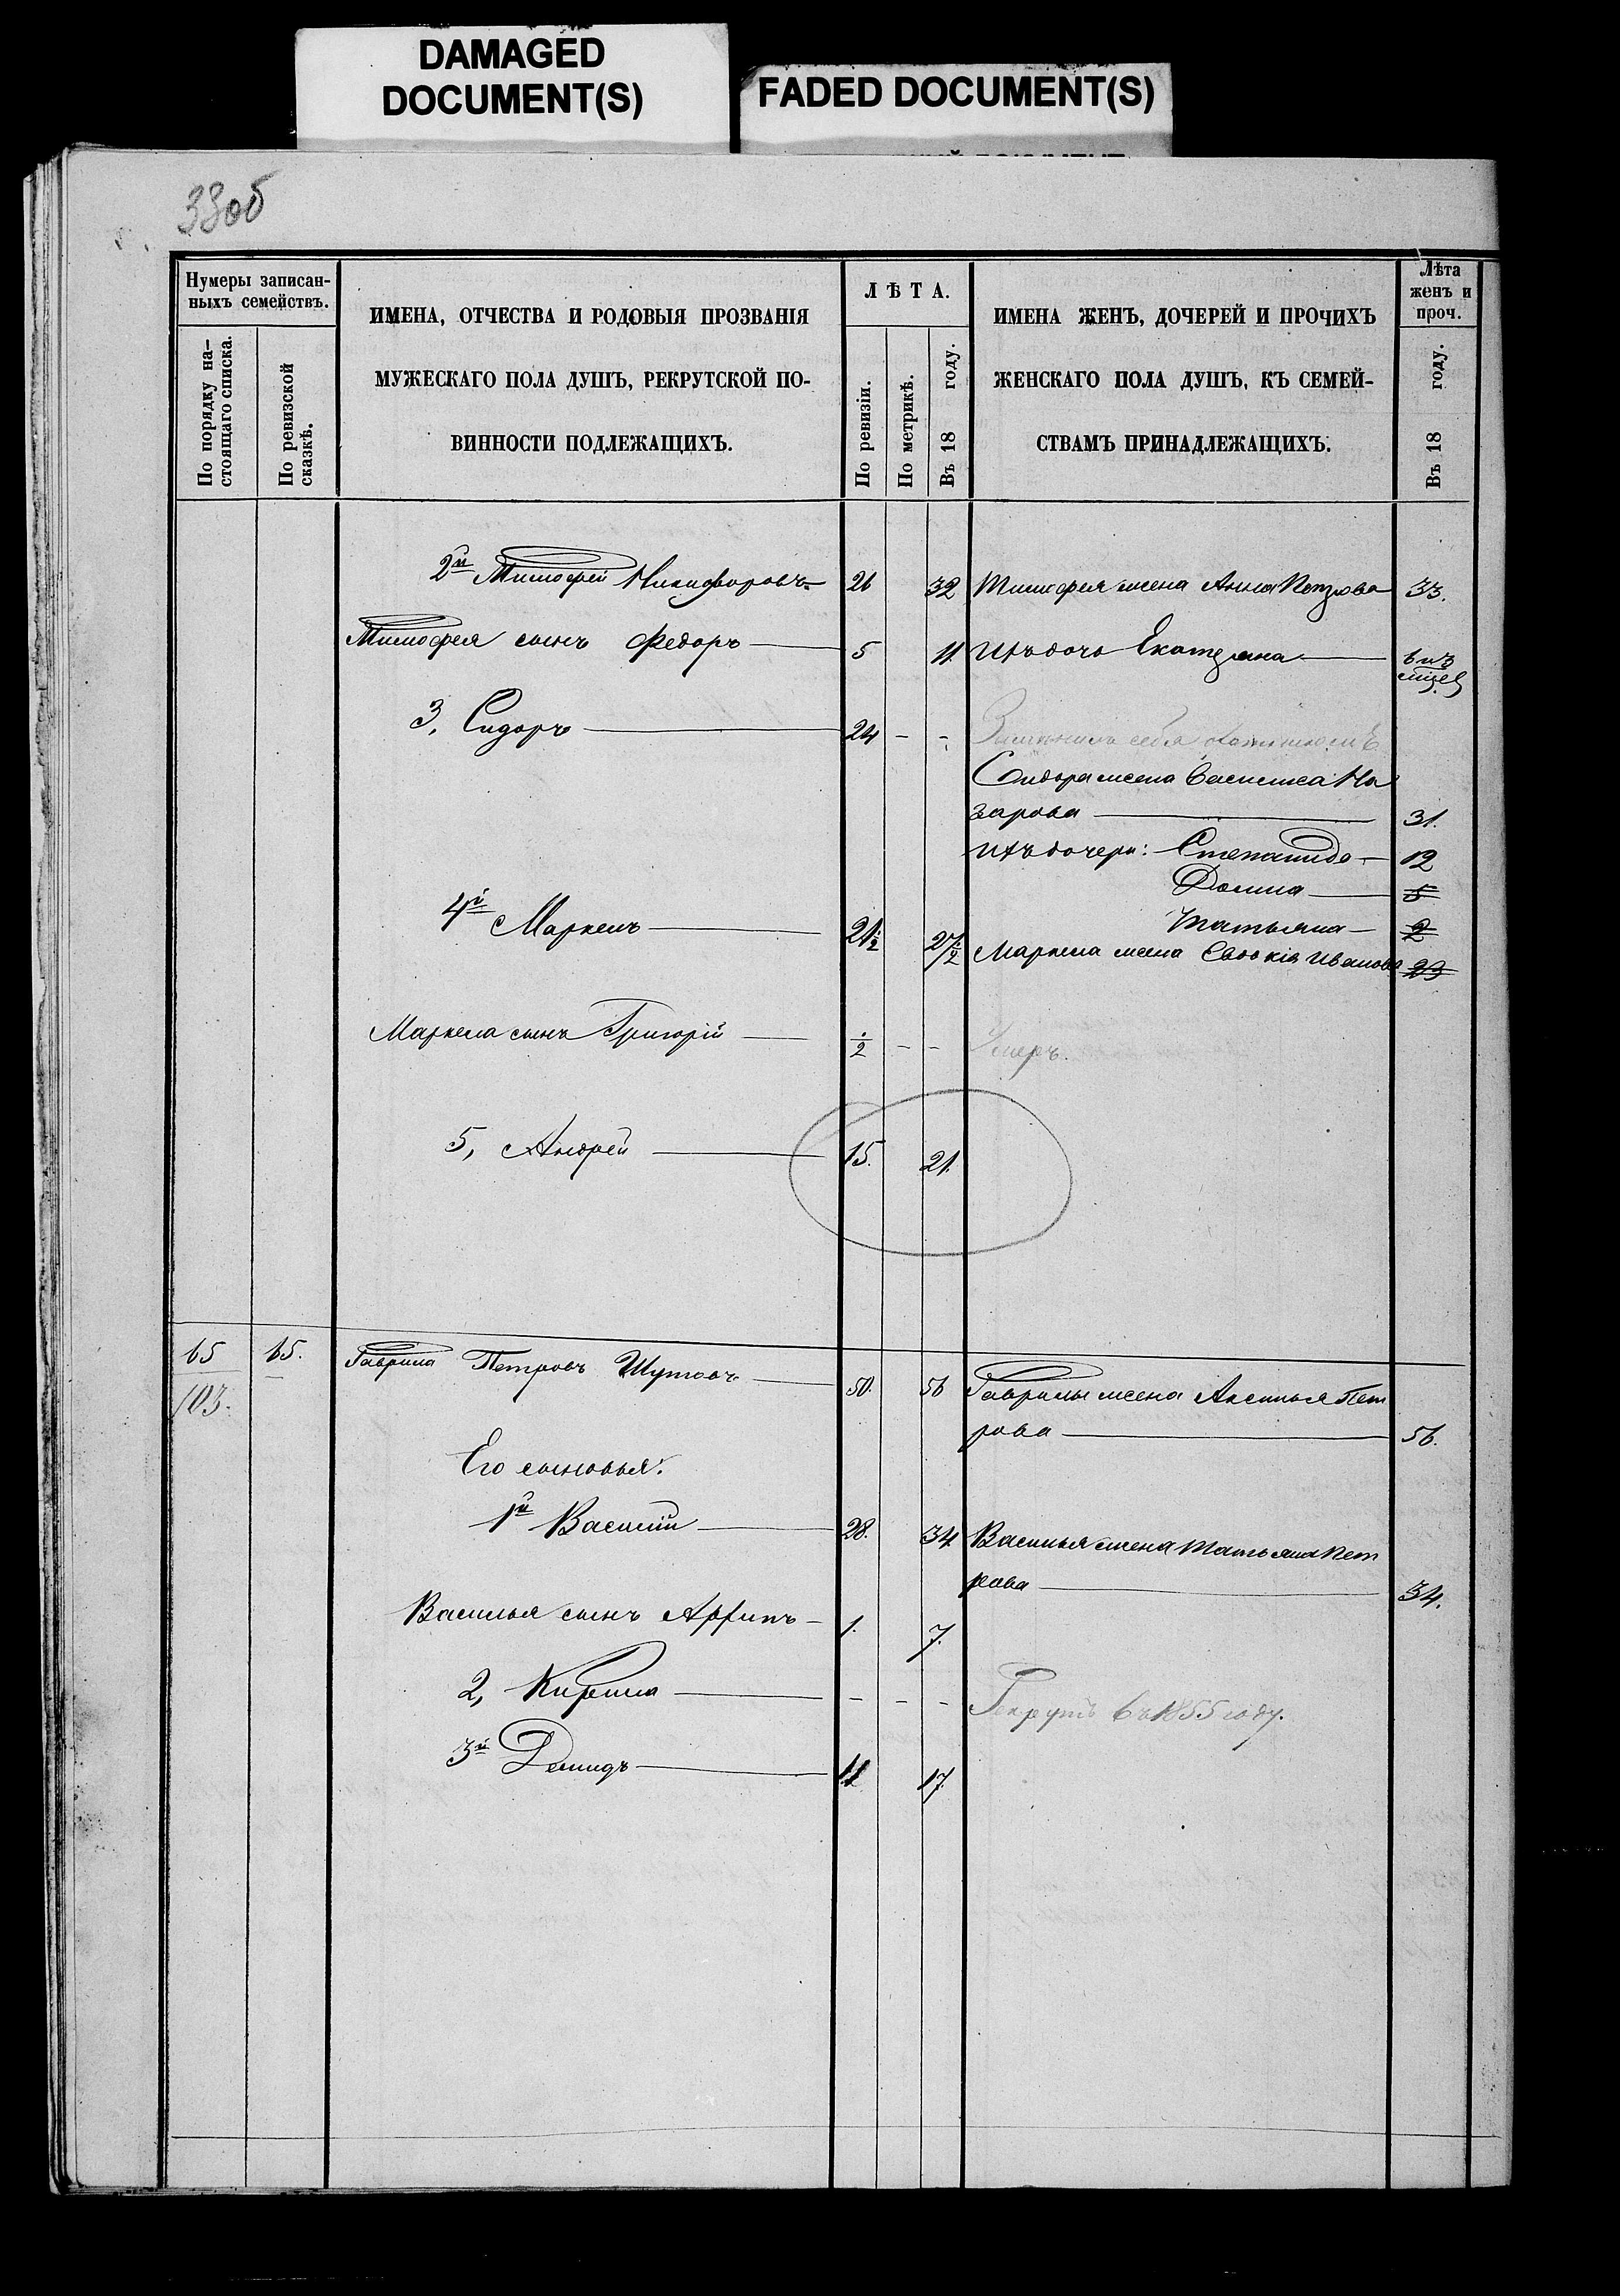 DAMAGED
DOCUMENT(S)
FADED DOCUMENT(S)
33об
Нумеры записан-
ныхъ семействъ.
По порядку на-
стоящаго списка.
По ревизской
сказкѣ.
ИМЕНА, ОТЧЕСТВА И РОДОВЫЯ ПРОЗВАНІЯ
МУЖЕСКАГО ПОЛА ДУШЪ, РЕКРУТСКОЙ ПО-
ВИННОСТИ ПОДЛЕЖАЩИХЪ.
ЛѢТА.
По ревизіи.
По метрикѣ.
Въ 18 году.
ИМЕНА ЖЕНЪ, ДОЧЕРЕЙ И ПРОЧИХЪ
ЖЕНСКАГО ПОЛА ДУШЪ, КЪ СЕМЕЙ-
СТВАМЪ ПРИНАДЛЕЖАЩИХЪ.
Лѣта
женъ и
проч.
Въ 18 году.
2й Тимофей Никифоровъ 26 32 Тимофея жена Анна Петрова 33.
Тимофея сынъ Федоръ 5 11 Ихъ дочь Екатерина 6 мѣ
сяцев
3, Сидоръ 24 - - себя
Сидора жена Василиса На
зарова 31.
Ихъ дочери: Степанида 12
Домна 5
Татьяна 2
4й Маркелъ 21½ 27½ Маркела жена Евдокія Иванова 23
Маркела сынъ Григорій ½ - - Умеръ.
5, Андрей 15. 21.
65 65. Гаврила Петровъ Шутовъ 50. 56 Гаврилы жена Аксинья Пет
103. рова 56.
Его сыновья:
1й Василій 28. 34 Василья жена Татьяна Пет
рова 34.
Василья сынъ Архипъ 1. 7.
2, Кирила - - - Рекрутъ въ 1855 году.
3й Демидъ 11 17.